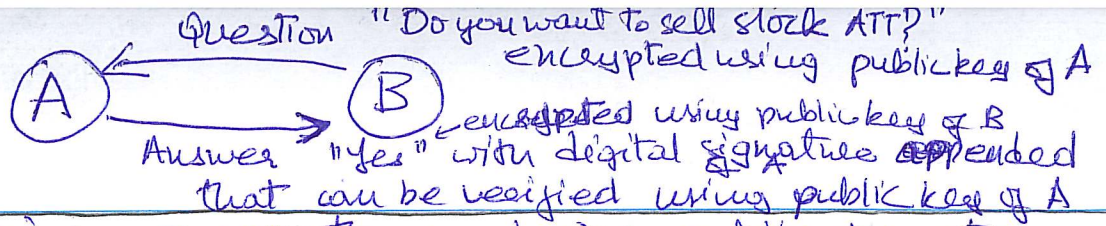 Question "Do you want to sell stock ATT?"
encrypted using public key of A
A
B
encrypted using public key of B
Answer "Yes" with digital signature appended
of A
that can be verified using public key of A